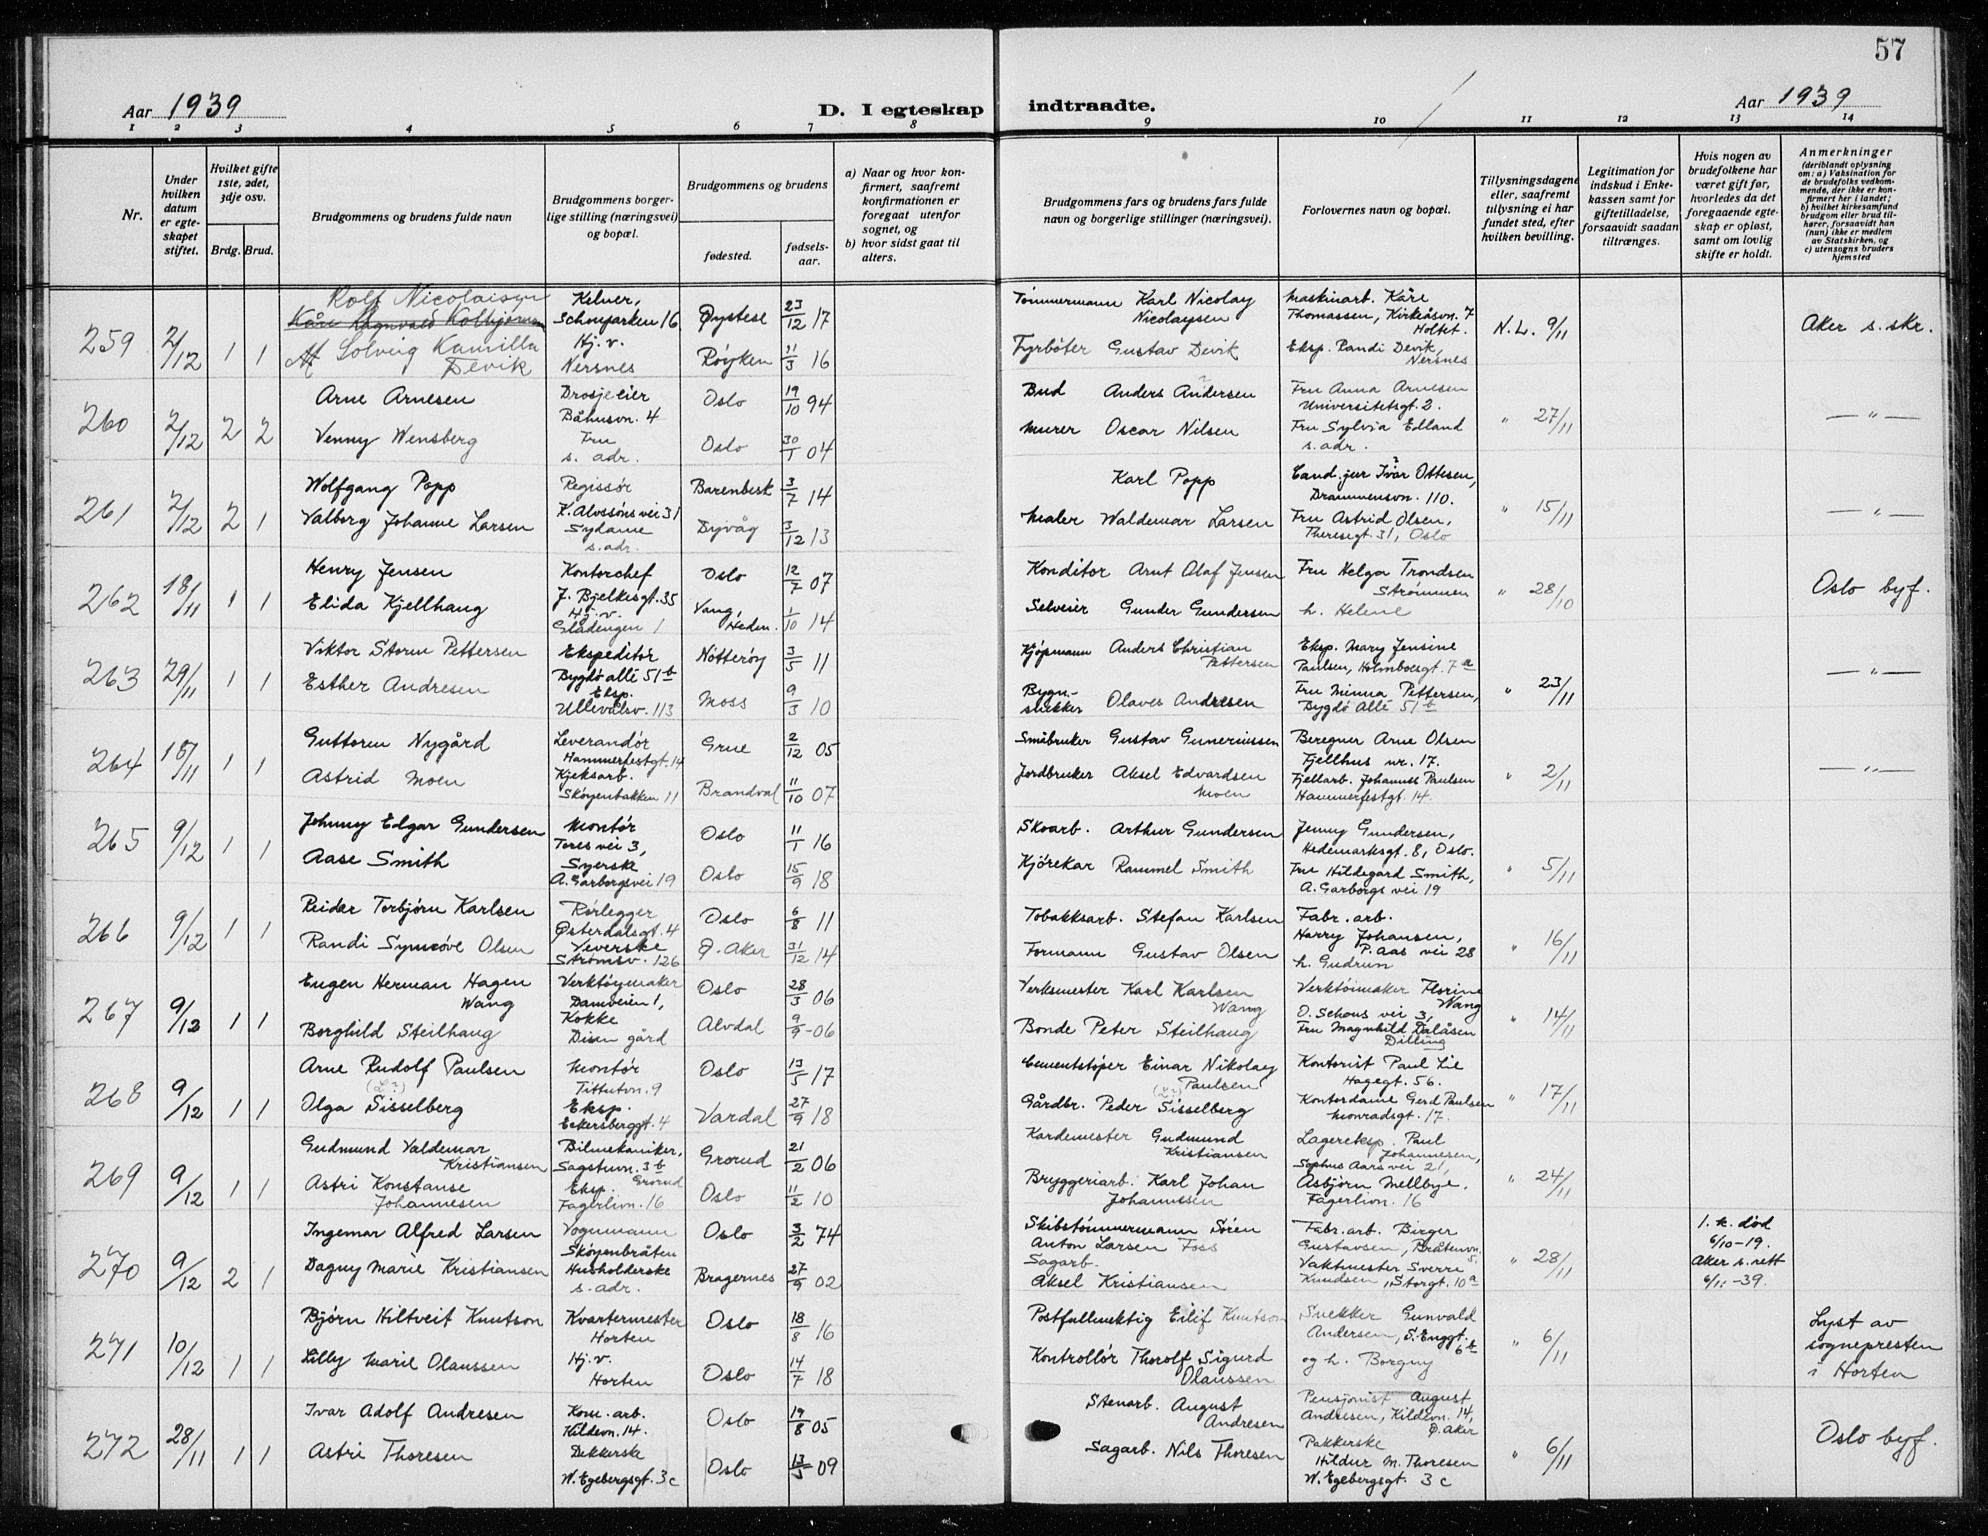 57
Aar 1939
D. I egteskap indtraadte.
Aar 1939
1 2 3 4 5 6 7 8 9 10 11 12 13 14
Nr.
Under hvilken datum er egteskapet stiftet.
Hvilket gifte 1ste, 2det, 3dje osv.
Brdg. Brud.
Brudgommens og brudens fulde navn
Brudgommens borgerlige stilling (næringsvei) og bopæl.
Brudgommens og brudens
fødested.
fødselsaar.
a) Naar og hvor konfirmert, saafremt konfirmationen er foregaat utenfor sognet, og
b) hvor sidst gaat til alters.
Brudgommens fars og brudens fars fulde navn og borgerlige stillinger (næringsvei).
Forlovernes navn og bopæl.
Tillysningsdagene eller, saafremt tillysning ei har fundet sted, efter hvilken bevilling.
Legitimation for indskud i Enkekassen samt for giftetilladelse, forsaavidt saadan tiltrænges.
Hvis nogen av brudefolkene har været gift før, hvorledes da det foregaaende egteskap er opløst, samt om lovlig skifte er holdt.
Anmerkninger
(deriblandt oplysning om: a) Vaksination for de brudefolks vedkommende, der ikke er konfirmert her i landet; b) hvilket kirkesamfund brudgom eller brud tilhører, forsaavidt han (hun) ikke er medlem av Statskirken, og c) utensogns bruders hjemsted
259 2/12 1 1
Rolf Nicolaisen
Kåre Ragnvald Kolbjørnsen
Solveig Kamilla Devik
Kelner, Schouparken 16
Hj. v. Nersnes
Øystese 23/12 17
Røyken 11/3 16
Tømmermann Karl Nicolay Nicolaysen
Fyrbøter Gustav Devik
Maskinarb. Kåre Thomassen, Kirkeåsvn. 7 Holtet.
Eksp. Randi Devik, Nersnes
N.L. 9/11
Aker s. skr.
260 2/12 2 2
Arne Arnesen
Venny Wensberg
Drosjeeier Båhusvn. 4
Fru s. adr.
Oslo 19/10 94
Oslo 30/1 04
Bud Anders Andersen
Murer Oscar Nilsen
Fru Anna Arnesen Universitetsgt. 2.
Fru Sylvia Edland s. adr.
" 27/11
— " —
261 2/12 2 1
Wolfgang Popp
Valborg Johanne Larsen
Regissør K. Alvssøns vei 31
Sydame s. adr.
Barenberk 3/7 14
Dyvåg 3/12 13
Karl Popp
Maler Waldemar Larsen
Cand. jur Ivar Ottesen, Drammensvn. 110.
Fru Astrid Olsen, Theresegt. 31, Oslo
" 15/11
— " —
262 18/11 1 1
Henry Jensen
Elida Kjellhaug
Kontorchef J. Bjelkesgt. 35
Hj. v. Gladengen 1
Oslo 12/7 07
Vang, Hedm. 1/10 14
Konditor Arnt Olaf Jensen
Selveier Gunder Gundersen
Fru Helga Trondsen Strømmen
h. Helene
" 28/10
Oslo byf.
263 29/11 1 1
Viktor Storm Pettersen
Esther Andresen
Ekspeditør Bygdø allé 51b
Eksp. Ullevålsv. 113
Nøtterøy 3/5 11
Moss 9/3 10
Kjøpmann Anders Christian Pettersen
Bygn.-snekker Olaves Andresen
Eksp. Mary Jensine Paulsen, Holmboesgt. 7a
Fru Minna Pettersen, Bygdø Allé 51b
" 23/11
— " —
264 15/11 1 1
Guttorm Nygård
Astrid Moen
Leverandør Hammerfestgt. 14
Kjeksarb. Skøyenbakken 11
Grue 2/12 05
Brandval 11/10 07
Småbruker Gustav Gunerиussen
Jordbruker Aksel Edvardsen Moen
Beregner Arne Olsen Fjellhus nr. 17.
Fjellarb. Johannes Paulsen Hammerfestgt. 14.
" 2/11
— " —
265 9/12 1 1
Johnny Edgar Gundersen
Aase Smith
Montør Tores vei 3,
Syerske A. Garborgsvei 19
Oslo 11/1 16
Oslo 15/9 18
Skoarb. Arthur Gundersen
Kjørekar Rammel Smith
Jenny Gundersen, Hedemarksgt. 8, Oslo.
Fru Hildegard Smith, A. Garborgs vei 19
" 5/11
266 9/12 1 1
Reidar Torbjørn Karlsen
Randi Synnøve Olsen
Rørlegger Østerdalsgt. 4
Veverske Strømsv. 126
Oslo 6/8 11
Ø. Aker 31/12 14
Tobakksarb. Stefan Karlsen
Formann Gustav Olsen
Fabr. arb. Harry Johansen, P. Aas vei 28
h. Gudrun
" 16/11
267 9/12 1 1
Eugen Herman Hagen Wang
Borghild Steilhaug
Verktøymaker Damveien 1,
Kokke Disen gård
Oslo 28/3 06
Alvdal 9/9-06
Verksmester Karl Karlsen Wang
Bonde Peter Steilhaug
Verktøimaker Florine Wang O. Schous vei 3,
Fru Magnhild Dalåsen Dilling
" 14/11
268 9/12 1 1
Arne Rudolf Paulsen
Olga Sisselberg
Montør Tittutvn. 9
Eksp. Eckersberggt. 4
Oslo 13/5 17
Vardal 27/9 18
Cementstøper Einar Nikolay Paulsen
Gårdbr. Peder Sisselberg
Kontorist Paul Lie Hagegt. 56.
Kontordame Gerd Paulsen Monradsgt. 17.
" 17/11
269 9/12 1 1
Gudmund Valdemar Kristiansen
Astri Konstanse Johannesen
Bilmekaniker, Sagstuvn. 3b Grorud
Eksp. Fagerlivn. 16
Grorud 21/2 06
Oslo 11/2 10
Kardemester Gudmund Kristiansen
Bryggeriarb. Karl Johan Johannesen
Lagereksp. Paul Johannesen, Sophus Aars vei 21,
Asbjørn Mellbye. Fagerlivn. 16
" 24/11
270 9/12 2 1
Ingemar Alfred Larsen
Dagny Marie Kristiansen
Vognmann Skøyenbråten
Husholderske s. adr.
Oslo 3/2 74
Bragernes 27/9 02
Skibstømmermann Søren Anton Larsen Foss
Sagarb. Aksel Kristiansen
Fabr. arb. Birger Gustavsen, Bråtenvn. 5.
Vaktmester Sverre Knudsen, Storgt. 10a
" 28/11
1. k. død 6/10-19. Aker s. rett 6/11-39.
271 10/12 1 1
Bjørn Hiltveit Knutson
Lilly Marie Olaussen
Kvartermester Horten
Hj. v. Horten
Oslo 18/8 16
Oslo 14/7 18
Postfullmektig Eilif Knutson
Kontrollør Thorolf Sigurd Olaussen
Snekker Gunvald Andersen, S. Enggt. 6b
og h. Borgny
" 6/11
Lyst av sognepresten i Horten
272 28/11 1 1
Ivar Adolf Andresen
Astri Thoresen
Kom. arb. Kildevn. 14.
Dekkerske W. Egebergsgt. 3c
Oslo 19/8 05
Oslo 13/5 09
Stenarb. August Andresen
Sagarb. Nils Thoresen
Pensjonist August Andresen, Kildevn. 14, Ø. Aker
Pakkerske Hildur M. Thoresen W. Egebergsgt. 3c
" 6/11
Oslo byf.